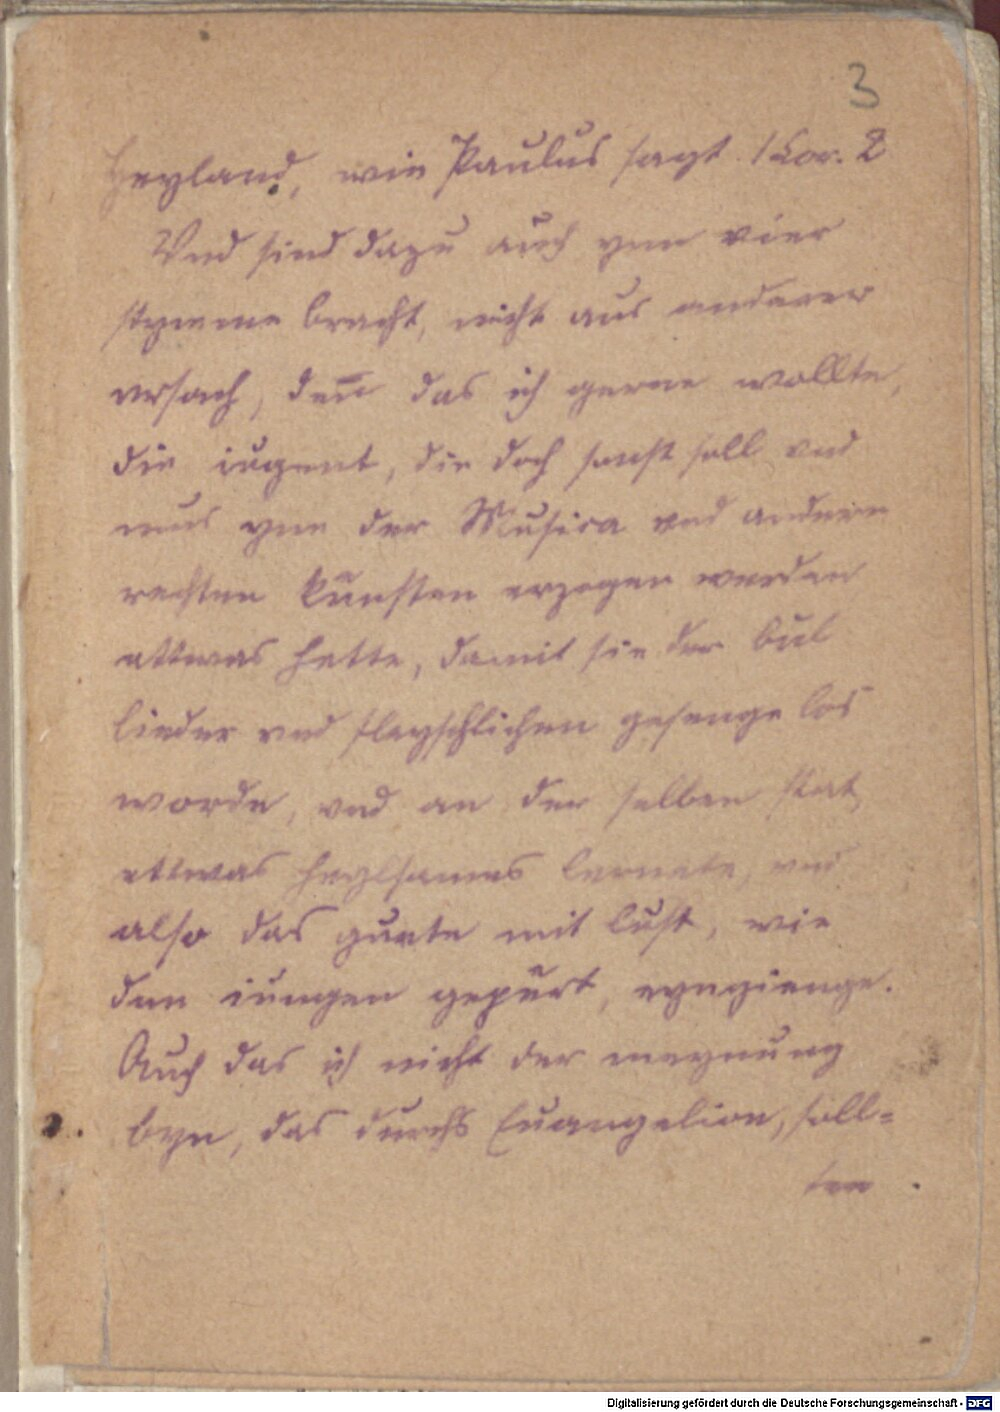 3
Heyland, wie Paulus sagt 1 Cor. 2
Vnd sind dazu auch ynn vier
stymme bracht, nicht aus anderer
vrsach, deñ das ich gerne wollte,
die iugent, die doch sonst soll vnd
mus ynn der Musica vnd andern
rechten kunsten erzogen werden
ettwas hette, damit sie der bul
lieder vnd fleyschlichen gesenge los
worde, vnd an der selben stat
ettwas heylsames lernete, vnd
also das guete mit lust, wie
den iungen gepürt, eyngienge.
Auch das ich nicht der meynung
byn, das durchs Euangelion, soll=
ten
Digitalisierung gefördert durch die Deutsche Forschungsgemeinschaft - DFG